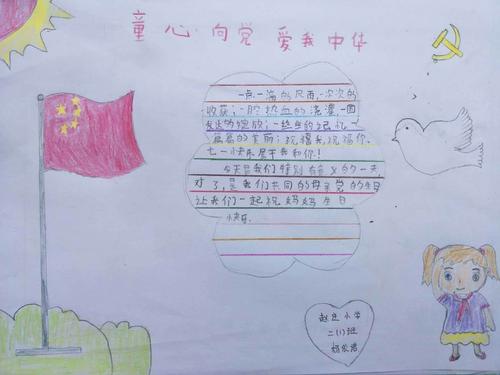 童心向党 爱我中华
一点一滴的风雨,一次次的
收获;一腔热血的浇灌,一园
的绽放;一热血的
的美丽;祝福我,祝福你.
七一快乐属于我和你!
今天是我们特别有意义的一天.
对了,是我们共同的母亲党的生日
让我们一起祝妈妈生日
快乐.
赵庄小学
二(1)班
杨